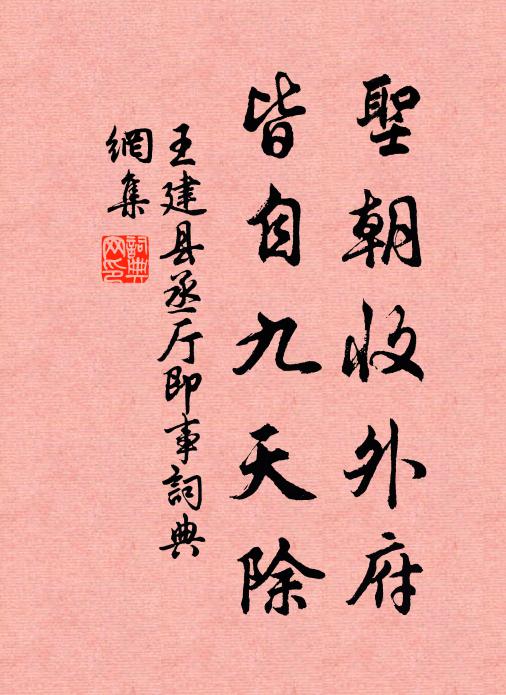 聖朝收外府
皆自九天除
王建县丞厅即事詞典
網集
詞典
网印